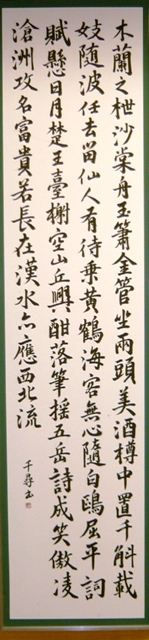 木蘭之枻沙棠舟玉簫金管坐兩頭美酒樽中置千斛載
妓隨波任去留仙人有待乘黃鶴海客無心隨白鷗屈平詞
賦懸日月楚王臺榭空山丘興酣落筆搖五岳詩成笑傲凌
滄洲功名富貴若長在漢水亦應西北流
千尋書